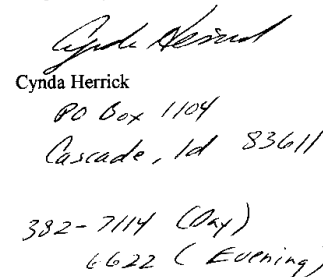 Cynda Herrick
Cynda Herrick
PO Box 1104
Cascade, Id 83611
382-7114 (Day)
6622 (Evening)